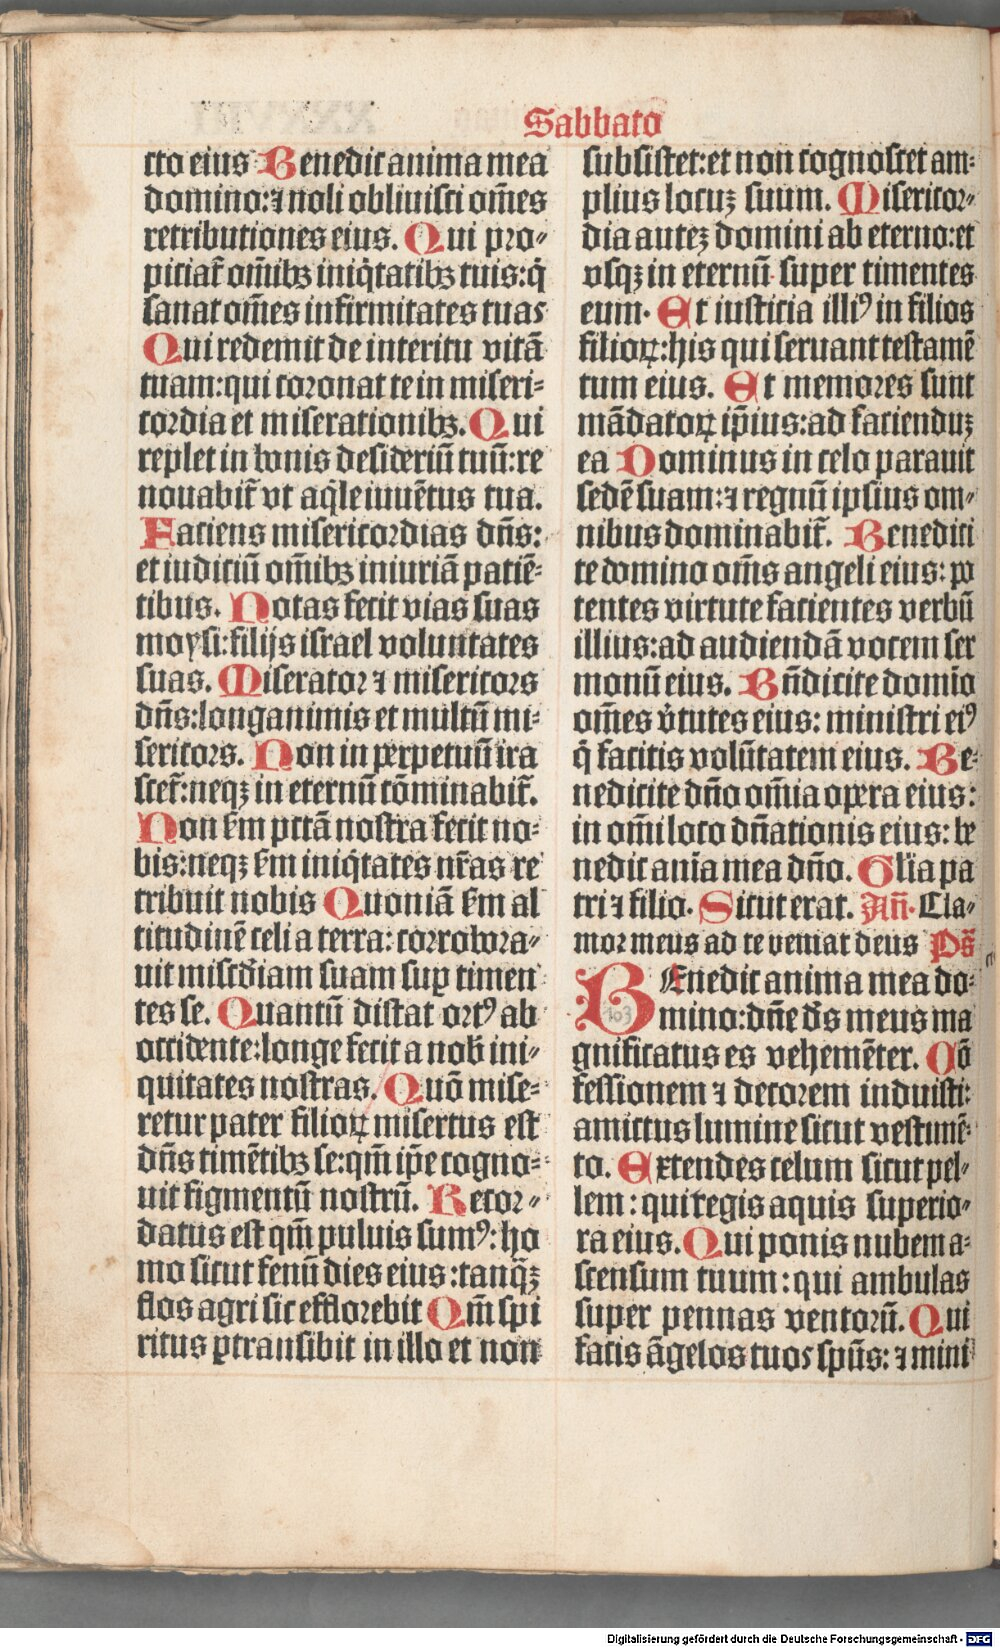 Sabbato
cto eius Benedic anima mea
domino:⁊ noli obliuisci om̄es
retributiones eius. Qui pro⸗
piciat̃ om̄ibꝫ iniq̇tatibꝫ tuis:q̇
sanat om̄es infirmitates tuas
Qui redemit de interitu vitā
tuam:qui coronat te in miseri⸗
cordia et miserationibꝫ. Qui
replet in bonis desideriū tuū:re
nouabit̃ vt aq̇le iuuētus tua.
Faciens misericordias dn̄s:
et iudiciū om̄ibꝫ iniuriā patiē⸗
tibus. Notas fecit vias suas
moysi:filijs israel voluntates
suas. Miserator ⁊ misericors
dn̄s:longanimis et multū mi⸗
sericors. Non in perpetuū ira
scet̃:neqꝫ in eternū cōminabit̃.
Non ẜm pctā nostra fecit no⸗
bis:neqꝫ ẜm iniq̇tates nr̄as re
tribuit nobis Quoniā ẜm al
titudinē celi a terra:corrobora⸗
uit misc̄diam suam suꝑ timen
tes se. Quantū distat ortꝰ ab
occidente:longe fecit a nob̄ ini⸗
quitates nostras. Quō mise⸗
retur pater filioꝝ misertus est
dn̄s timētibꝫ se:qm̄ ip̄e cogno⸗
uit figmentū nostrū. Recor⸗
datus est qm̄ puluis sumꝰ:ho
mo sicut fenū dies eius:tanq̄ꝫ
flos agri sic efflorebit Qm̄ spi
ritus ꝑtransibit in illo et non
subsistet:et non cognoscet am⸗
plius locuꝫ suum. Misericor⸗
dia auteꝫ domini ab eterno:et
vsqꝫ in eternū super timentes
eum. Et iusticia illiꝰ in filios
filioꝝ:his qui seruant testamē
tum eius. Et memores sunt
mādatoꝝ ip̄ius:ad facienduꝫ
ea Dominus in celo parauit
sedē suam:⁊ regnū ipsius om⸗
nibus dominabit̃. Benedici
te domino om̄s angeli eius:po
tentes virtute facientes verbū
illius:ad audiendā vocem ser
monū eius. Bn̄dicite domīo
om̄es v̇tutes eius:ministri eiꝰ
q̇ facitis volūtatem eius. Be⸗
nedicite dn̄o om̄ia opera eius:
in om̄i loco dn̄ationis eius:be
nedic aīa mea dn̄o. Glīa pa
tri ⁊ filio. Sicut erat. Añ. Cla⸗
mor meus ad te veniat deus Ps̄
BEnedic anima mea do⸗
103
mino:dn̄e de̅s meus ma
gnificatus es vehemēter. Cō
fessionem ⁊ decorem induisti:
amictus lumine sicut vestimē⸗
to. Extendes celum sicut pel⸗
lem:qui tegis aquis superio⸗
ra eius. Qui ponis nubem a⸗
scensum tuum:qui ambulas
super pennas ventorū. Qui
facis āgelos tuos spūs:⁊ mini
Digitalisierung gefördert durch die Deutsche Forschungsgemeinschaft - DFG